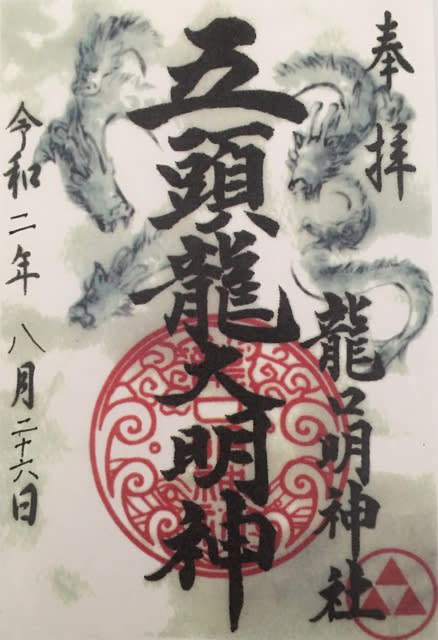 奉拝
龍口明神社
五頭龍大明神
令和二年 八月二十六日